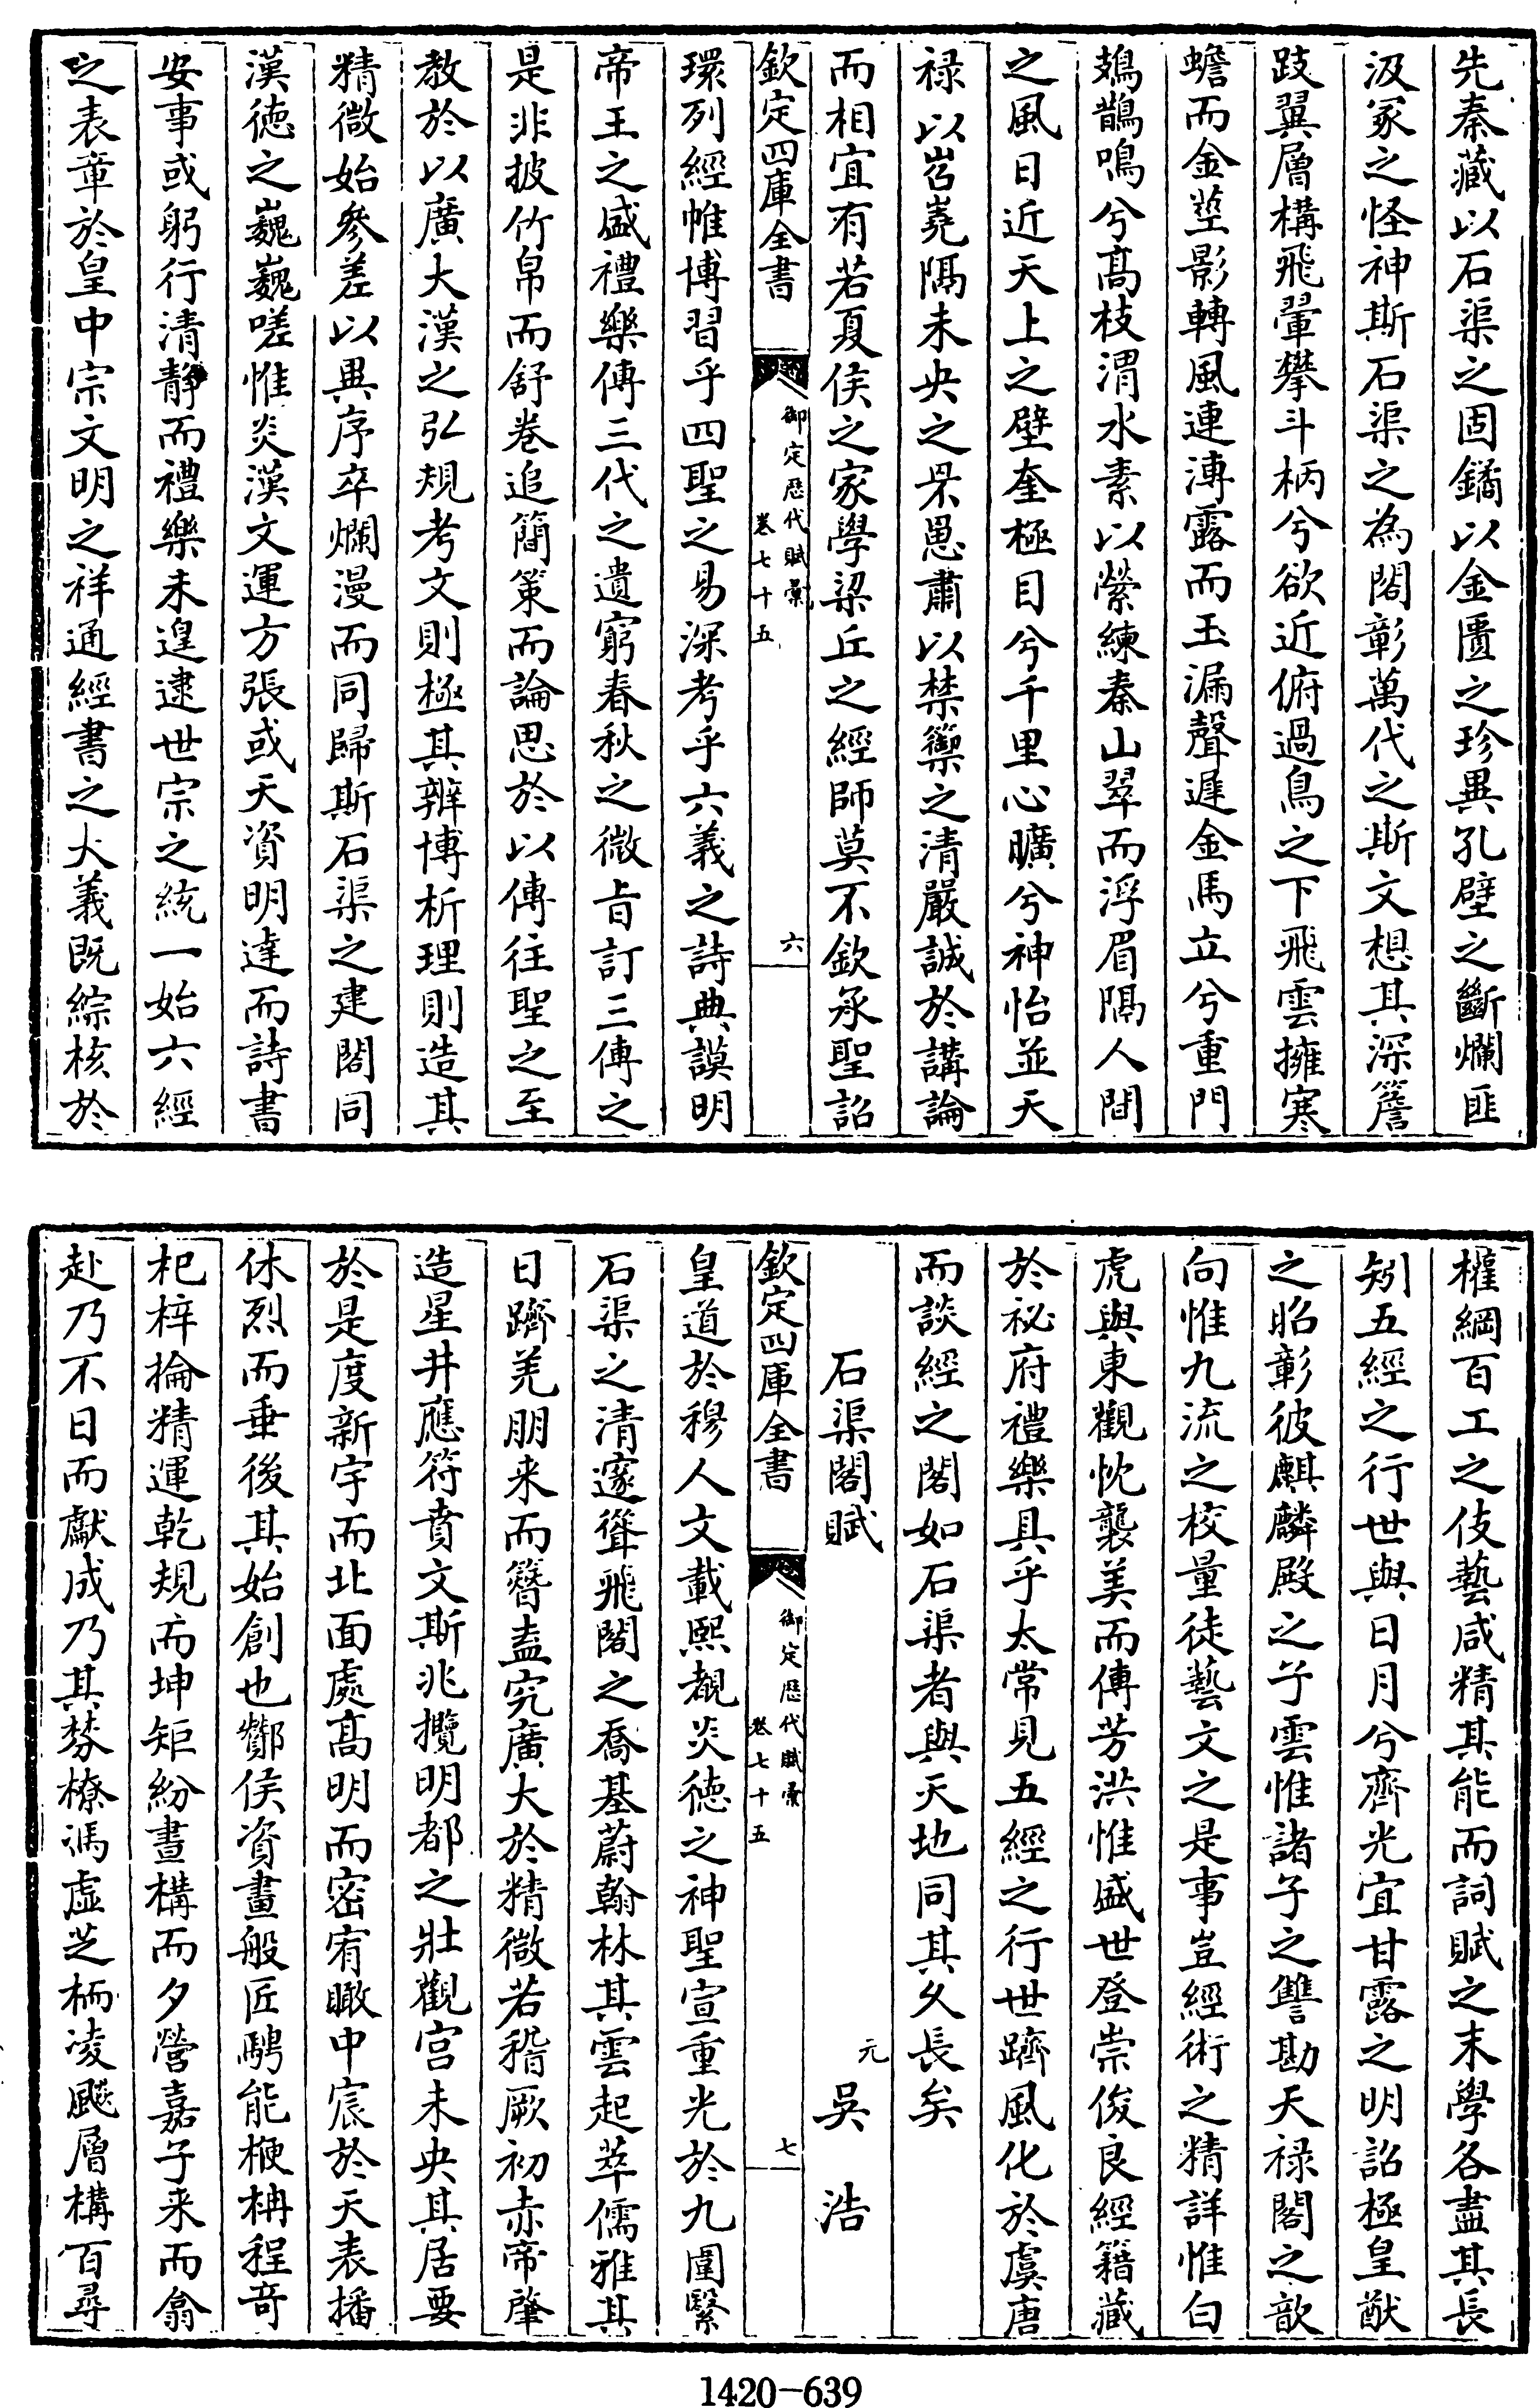 先秦藏以石渠之固鐍以金匱之珍異孔壁之斷爛匪
汲冢之怪神斯石渠之為閣彰萬代之斯文想其深簷
跂翼層構飛翬攀斗柄兮欲近俯過鳥之下飛雲擁寒
蟾而金莖影轉風連溥露而玉漏聲遲金馬立兮重門
鳷鵲鳴兮髙枝渭水素以縈練秦山翠而浮眉隔人間
之風日近天上之壁奎極目兮千里心曠兮神怡並天
禄以岧嶤隔未央之罘罳肅以禁籞之清嚴誠於講論
而相宜有若夏侯之家學梁丘之經師莫不欽承聖詔
欽定四庫全書
御定歴代賦彙
卷七十五
六
環列經帷博習乎四聖之易深考乎六義之詩典謨明
帝王之盛禮樂傳三代之遺窮春秋之微㫖訂三傳之
是非披竹帛而舒卷追簡策而論思於以傳往聖之至
教於以廣大漢之弘規考文則極其辨博析理則造其
精微始參差以異序卒爛漫而同歸斯石渠之建閣同
漢德之巍巍嗟惟炎漢文運方張或天資明達而詩書
安事或躬行清靜而禮樂未遑逮世宗之統一始六經
之表章於皇中宗文明之祥通經書之大義既綜核於
權綱百工之伎藝咸精其能而詞賦之末學各盡其長
矧五經之行世與日月兮齊光宜甘露之明詔極皇猷
之昭彰彼麒麟殿之子雲惟諸子之讐勘天禄閣之歆
向惟九流之校量徒藝文之是事豈經術之精詳惟白
虎與東觀忱襲美而傳芳洪惟盛世登崇俊良經籍藏
於祕府禮樂具乎太常見五經之行世躋風化於虞唐
而談經之閣如石渠者與天地同其久長矣
石渠閣賦
元
吳浩
欽定四庫全書
御定歴代賦彙
卷七十五
七
皇道於穆人文載熙覩炎徳之神聖宣重光於九圍繄
石渠之清邃聳飛閣之喬基蔚翰林其雲起萃儒雅其
日躋羌朋来而簪盍究廣大於精微若稽厥初赤帝肇
造星井應符賁文斯兆攬明都之壯觀宫未央其居要
於是度新宇而北面處髙明而密宥瞰中宸於天表播
休烈而垂後其始創也酇侯資畫般匠騁能楩柟程竒
杞梓掄精運乾規而坤矩紛晝構而夕營嘉子来而翕
赴乃不日而獻成乃其棼橑馮虚芝栭凌飈層構百尋
1420-639